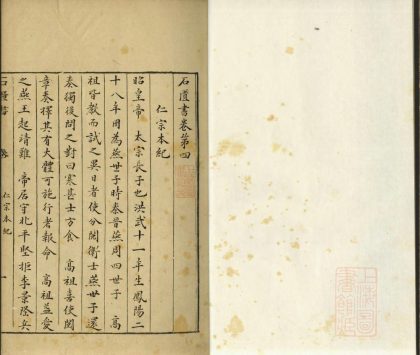 石匱書卷第四
仁宗本紀
昭皇帝 太宗長子也洪武十一年生鳳陽二
十八年冊為燕世子時秦晉燕周四世子 高
祖皆教而試之異日者使分閱衛士燕世子還
奏獨後問之對曰寒甚士方食 高祖喜使閱
章奏擇其有大體可施行者報命 高祖益愛
之燕王起靖難 帝居守北平堅拒李景隆兵
石匱書
仁宗本紀
一
上海圖
書館藏